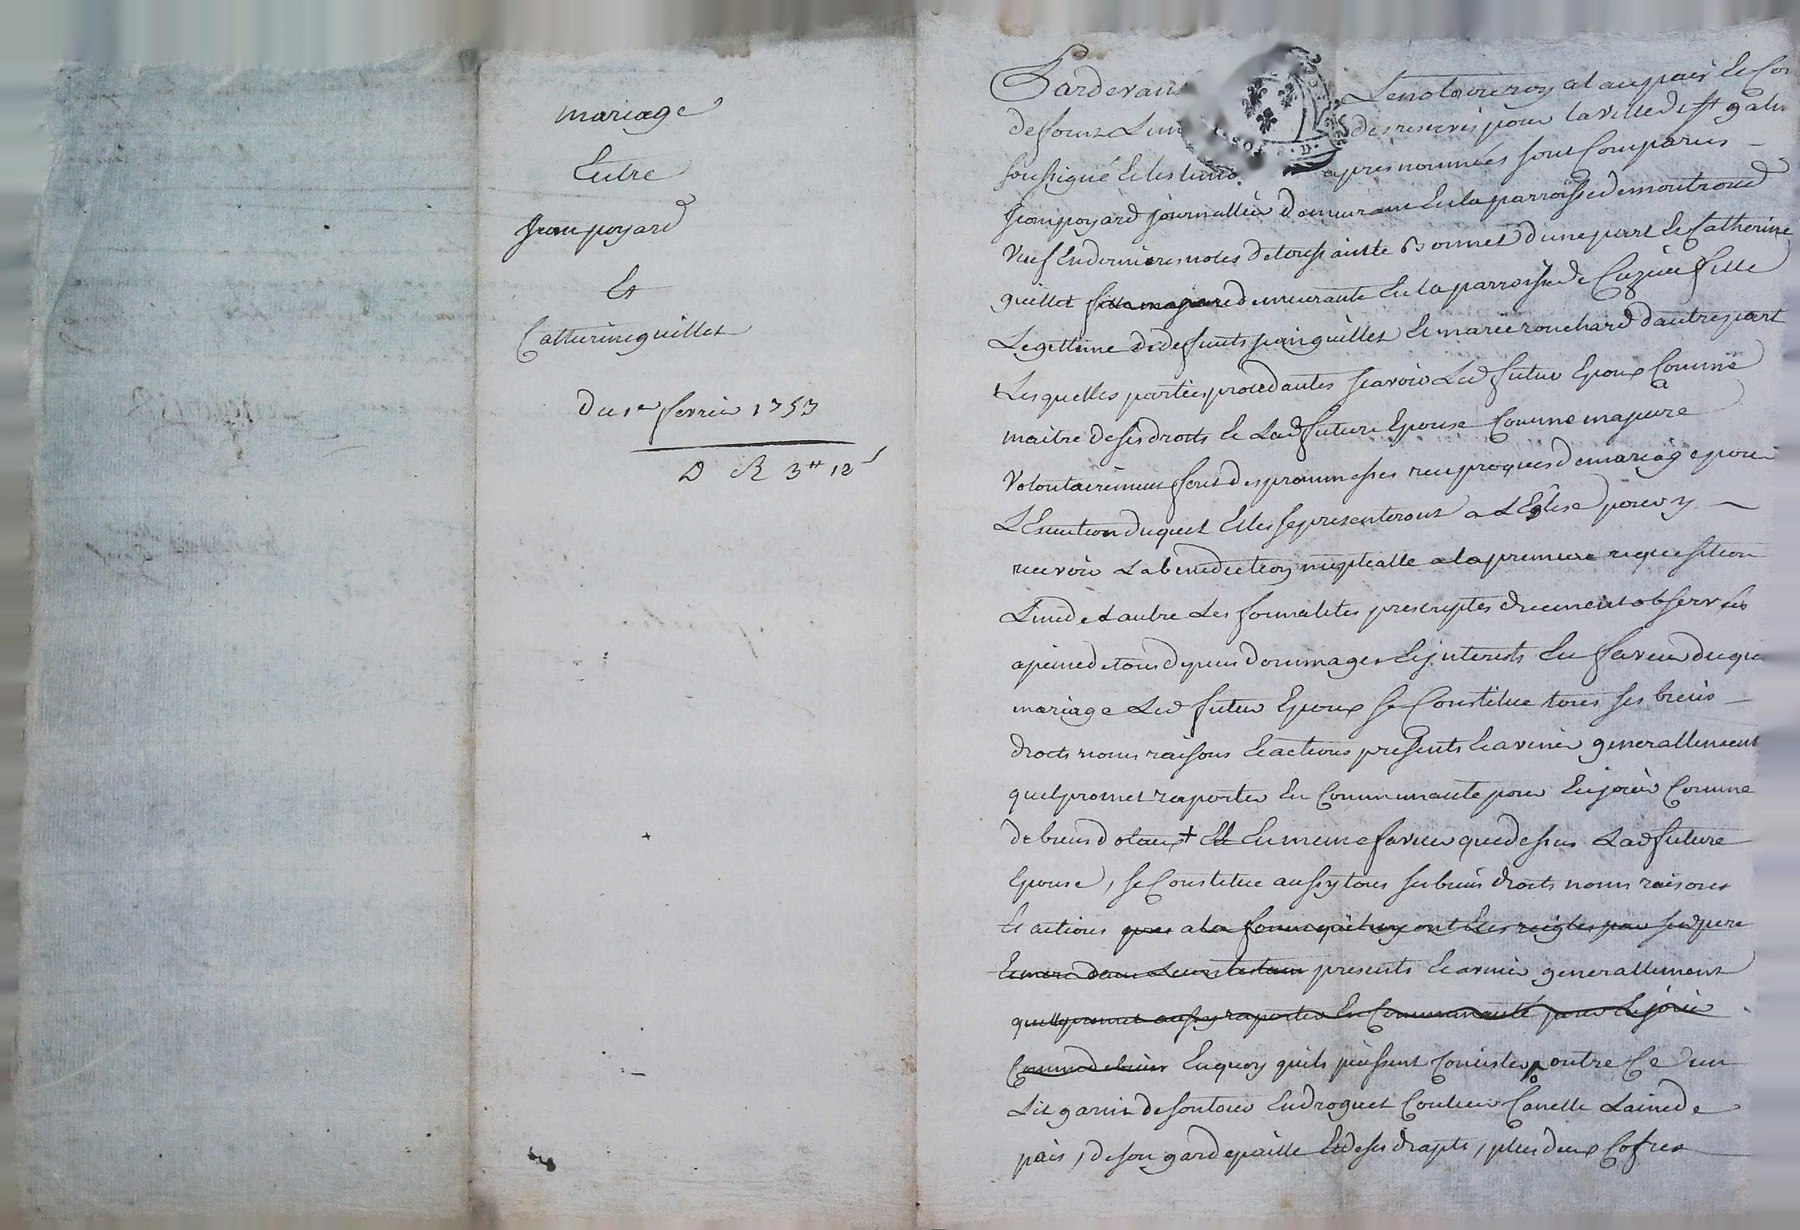 mariage
Entre
Jean poyard
Et
Catherine guillet
Du 1er fevrier 1753
D R 3# 12s
Pardevant Le notaire royal au pais Et Co
de forest des reservés pour la ville de St galm
soussigné Et les temo apres nommées sont Comparus
Jean poyard journallier demeurant En la parroisse de montroud
Veuf En dernieres noces de toussainte Bonnet d'une part Et Catherine
guillet fille majeure demeurante En la parroisse de Cuzieu fille
Legettime de defunts guillet Et marie rouchard d'autre part
Lesquelles parties procedantes scavoir Led futur Epoux Comme
maitre de ses droits Et Lad future Epouse Comme majeure
Volontairement font des prommesses reciproques de mariage pour
L'Execution duquel Elles se presenteront a L'Eglise pour y
recevoir La benediction nuptialle a la premiere requisition
L'une de L'autre Les formalites prescriptes duement observées
a peine de tous depens dommages Et interests En faveur duquel
mariage Led futur Epoux se Constitue tous ses biens
droits noms raisons Et actions presents Et avenir generallement
quel promet raporter En Communauté pour En jouir Comme
de biens dotaux + Et En meme faveur que dessus Lad future
Epouse, se Constitue aussy tous ses biens droits noms raisons
Et actions a la forme ont Eté reigles par ses pere
Et mere dans Leurs testam presents Et avenir generallement
quelle promet aussy raporter En Communauté pour En jouir
Comme de biens En quoy quils puissent Consister, outre Ce d'un
Lit garni de son tour En droguet Couleur Canelle Laine de
pais, de son garde paille Et de ses draps, plus deux Cofres